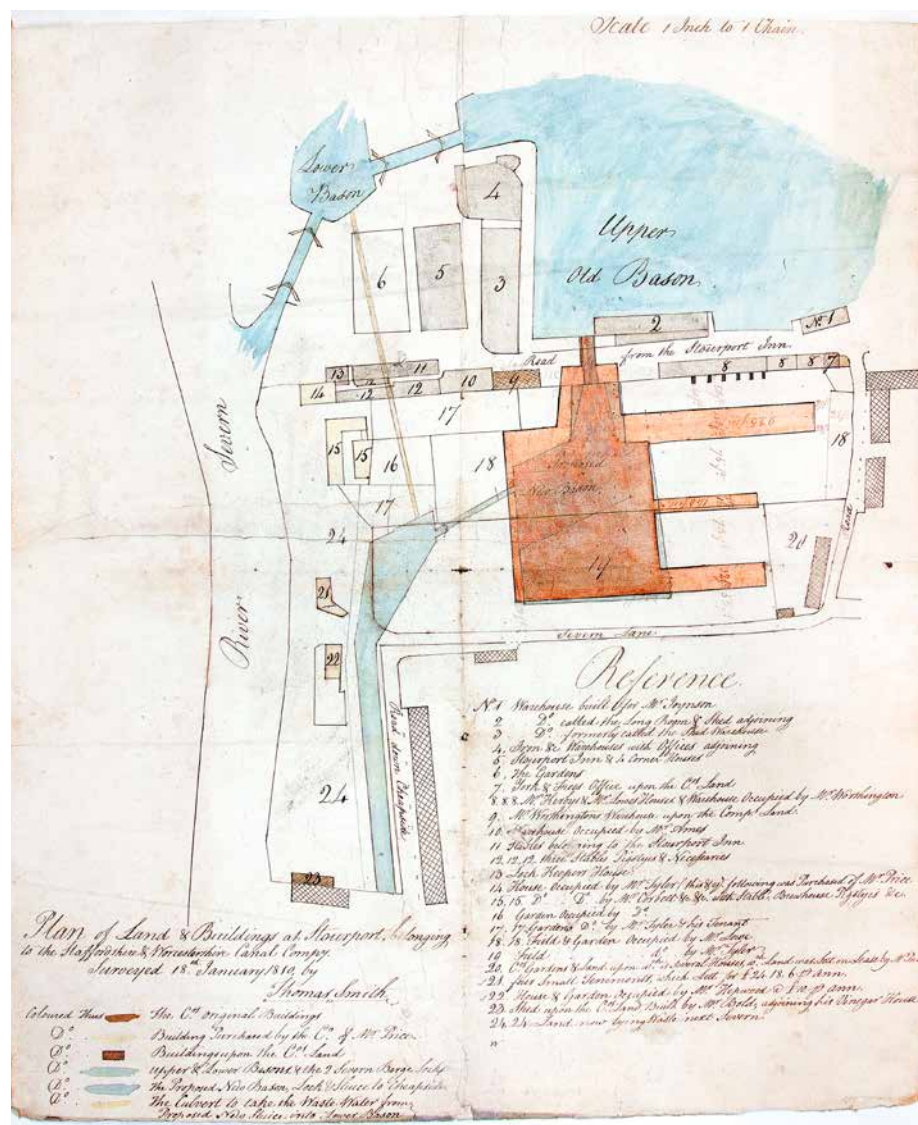 Scale 1 Inch to 1 Chain.
Lower
Bason
4
Upper
Old Bason
6
5
3
2
No. 1
Road from the Stourport Inn
13
11
12
10
9
8
8
8
7
14
12
12
17
15
15
16
18
18
Proposed
New Bason
River Severn
17
24
20
19
21
Severn Lane
22
Road down Cheapside
24
23
Reference
No. 1 Warehouse built for Mr. Joynson
2 Do. called the Long Room & Shed adjoining
3 Do. formerly called the Warehouse
4. Iron &c Warehouses with Offices adjoining
5. Stourport Inn & Corner Houses
6. The Gardens
7. Office upon the Cos. Land
8.8.8. Mr. & Mr. Houses & Warehouse Occupied by Mr. Worthington
9. Mr. Worthingtons Warehouse upon the Comps. Land.
10. Warehouse Occupied by Mr. Ames
11 Stables belonging to the Stourport Inn
12.12.12. three Stables Pigstyes & Necessaries
13 Lock Keepers House
14 House Occupied by Mr. Tyler (this & ye. following was Purchased of Mr. Price
15.15 Do. Do. by Mr. &c. &c. Stable, Brewhouse Pigstyes &c.
16 Garden Occupied by Do.
17.17 Gardens Do. by Mr. Tyler & his Tenant
18.18. Field & Garden Occupied by Mr.
19 Field do. by Mr. Tyler
20. Cos. Gardens & Land upon wch. is several Houses, wh. Land was Let on Lease by Mr.
21. four Small Tenements, which Lett for £24.18.6 p Ann.
22 House & Garden Occupied by Mr. Hepwood @ £10. p ann.
23 Shed upon the Cos. Land Built by Mr. Bold, adjoining his Vinegar House
24.24 Land now lying Waste next Severn.
Plan of Land & Buildings at Stourport, belonging
to the Staffordshire & Worcestershire Canal Compy.
Surveyed 18th. January 1810, by
Thomas Smith.
Coloured thus the Cos. original Buildings
Do. Building Purchased by the Co. of Mr. Price.
Do. Buildings upon the Cos. Land
Do. Upper & Lower Basons & the 2 Severn Barge Locks
Do. the Proposed New Bason, Lock & Sluice to Cheapside
Do. the Culvert to take the Waste Water from
Proposed New Sluice into Lower Bason